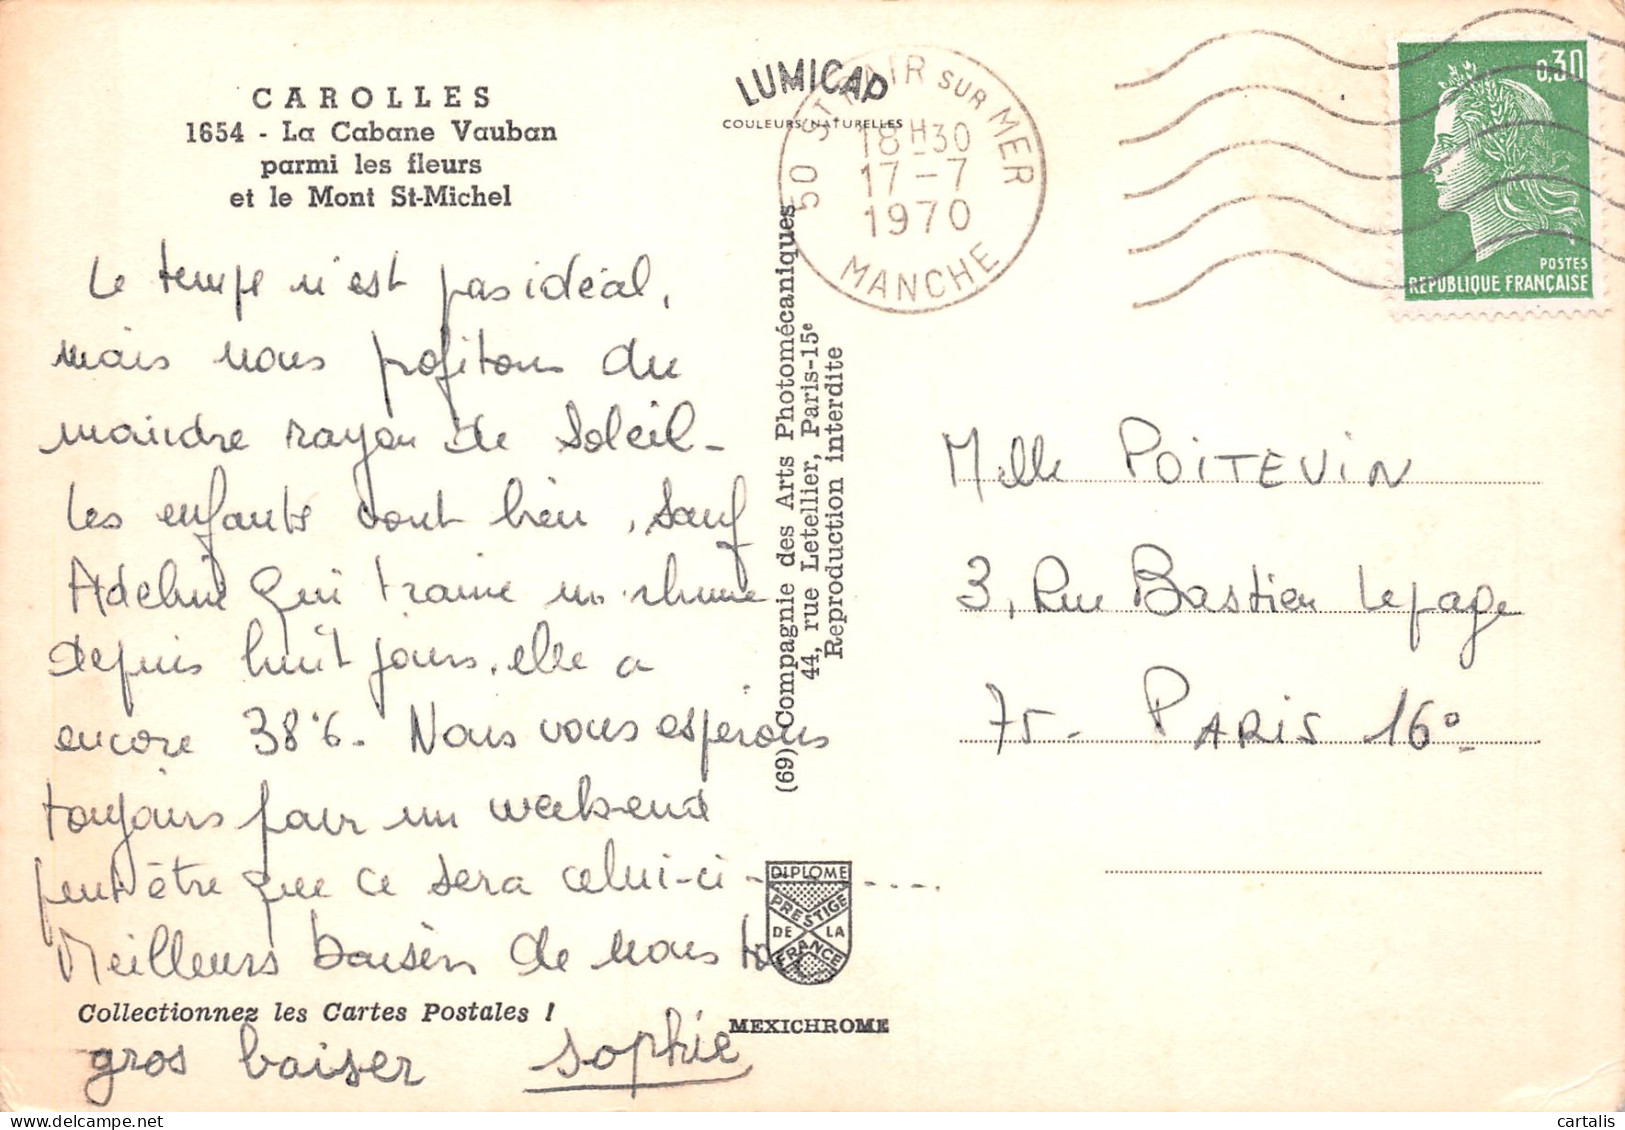 CAROLLES
1654 - La Cabane Vauban
parmi les fleurs
et le Mont St-Michel
Le temps n'est pas idéal,
mais nous profitons du
moindre rayon de soleil -
Les enfants vont bien, sauf
Adeline qui traine un rhume
depuis huit jours, elle a
encore 38°6. Nous vous espérons
toujours pour un week-end
peut-être que ce sera celui-ci - . . . . .
Meilleurs baisers de nous
Collectionnez les Cartes Postales !
gros baiser sophie
LUMICAP
COULEURS NATURELLES
(69) Compagnie des Arts Photomécaniques
44, rue Letellier, Paris-15e
Reproduction interdite
DIPLOME
PRESTIGE
DE LA
FRANCE
MEXICHROME
50 ST PAIR SUR MER
18H30
17-7
1970
MANCHE
0,30
POSTES
REPUBLIQUE FRANÇAISE
Melle POITEVIN
3, Rue Bastien Lepage
75 - PARIS 16°
cartalis